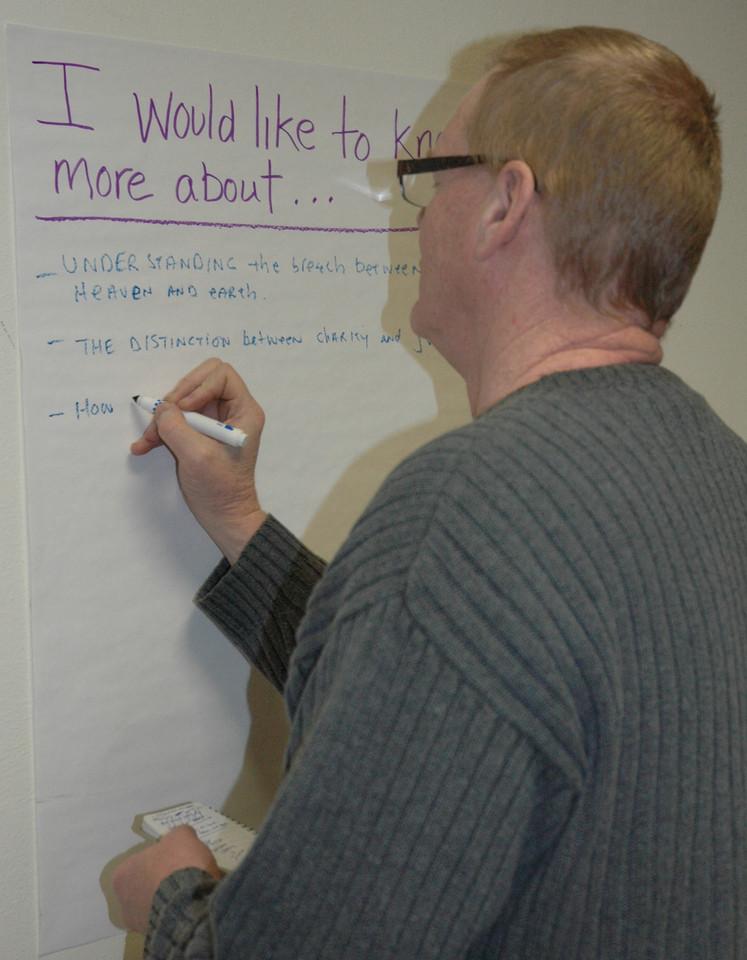 I would like to kn
more about...
- UNDERSTANDING the breach between
HEAVEN AND EARTH.
- THE DISTINCTION between charity and
- How